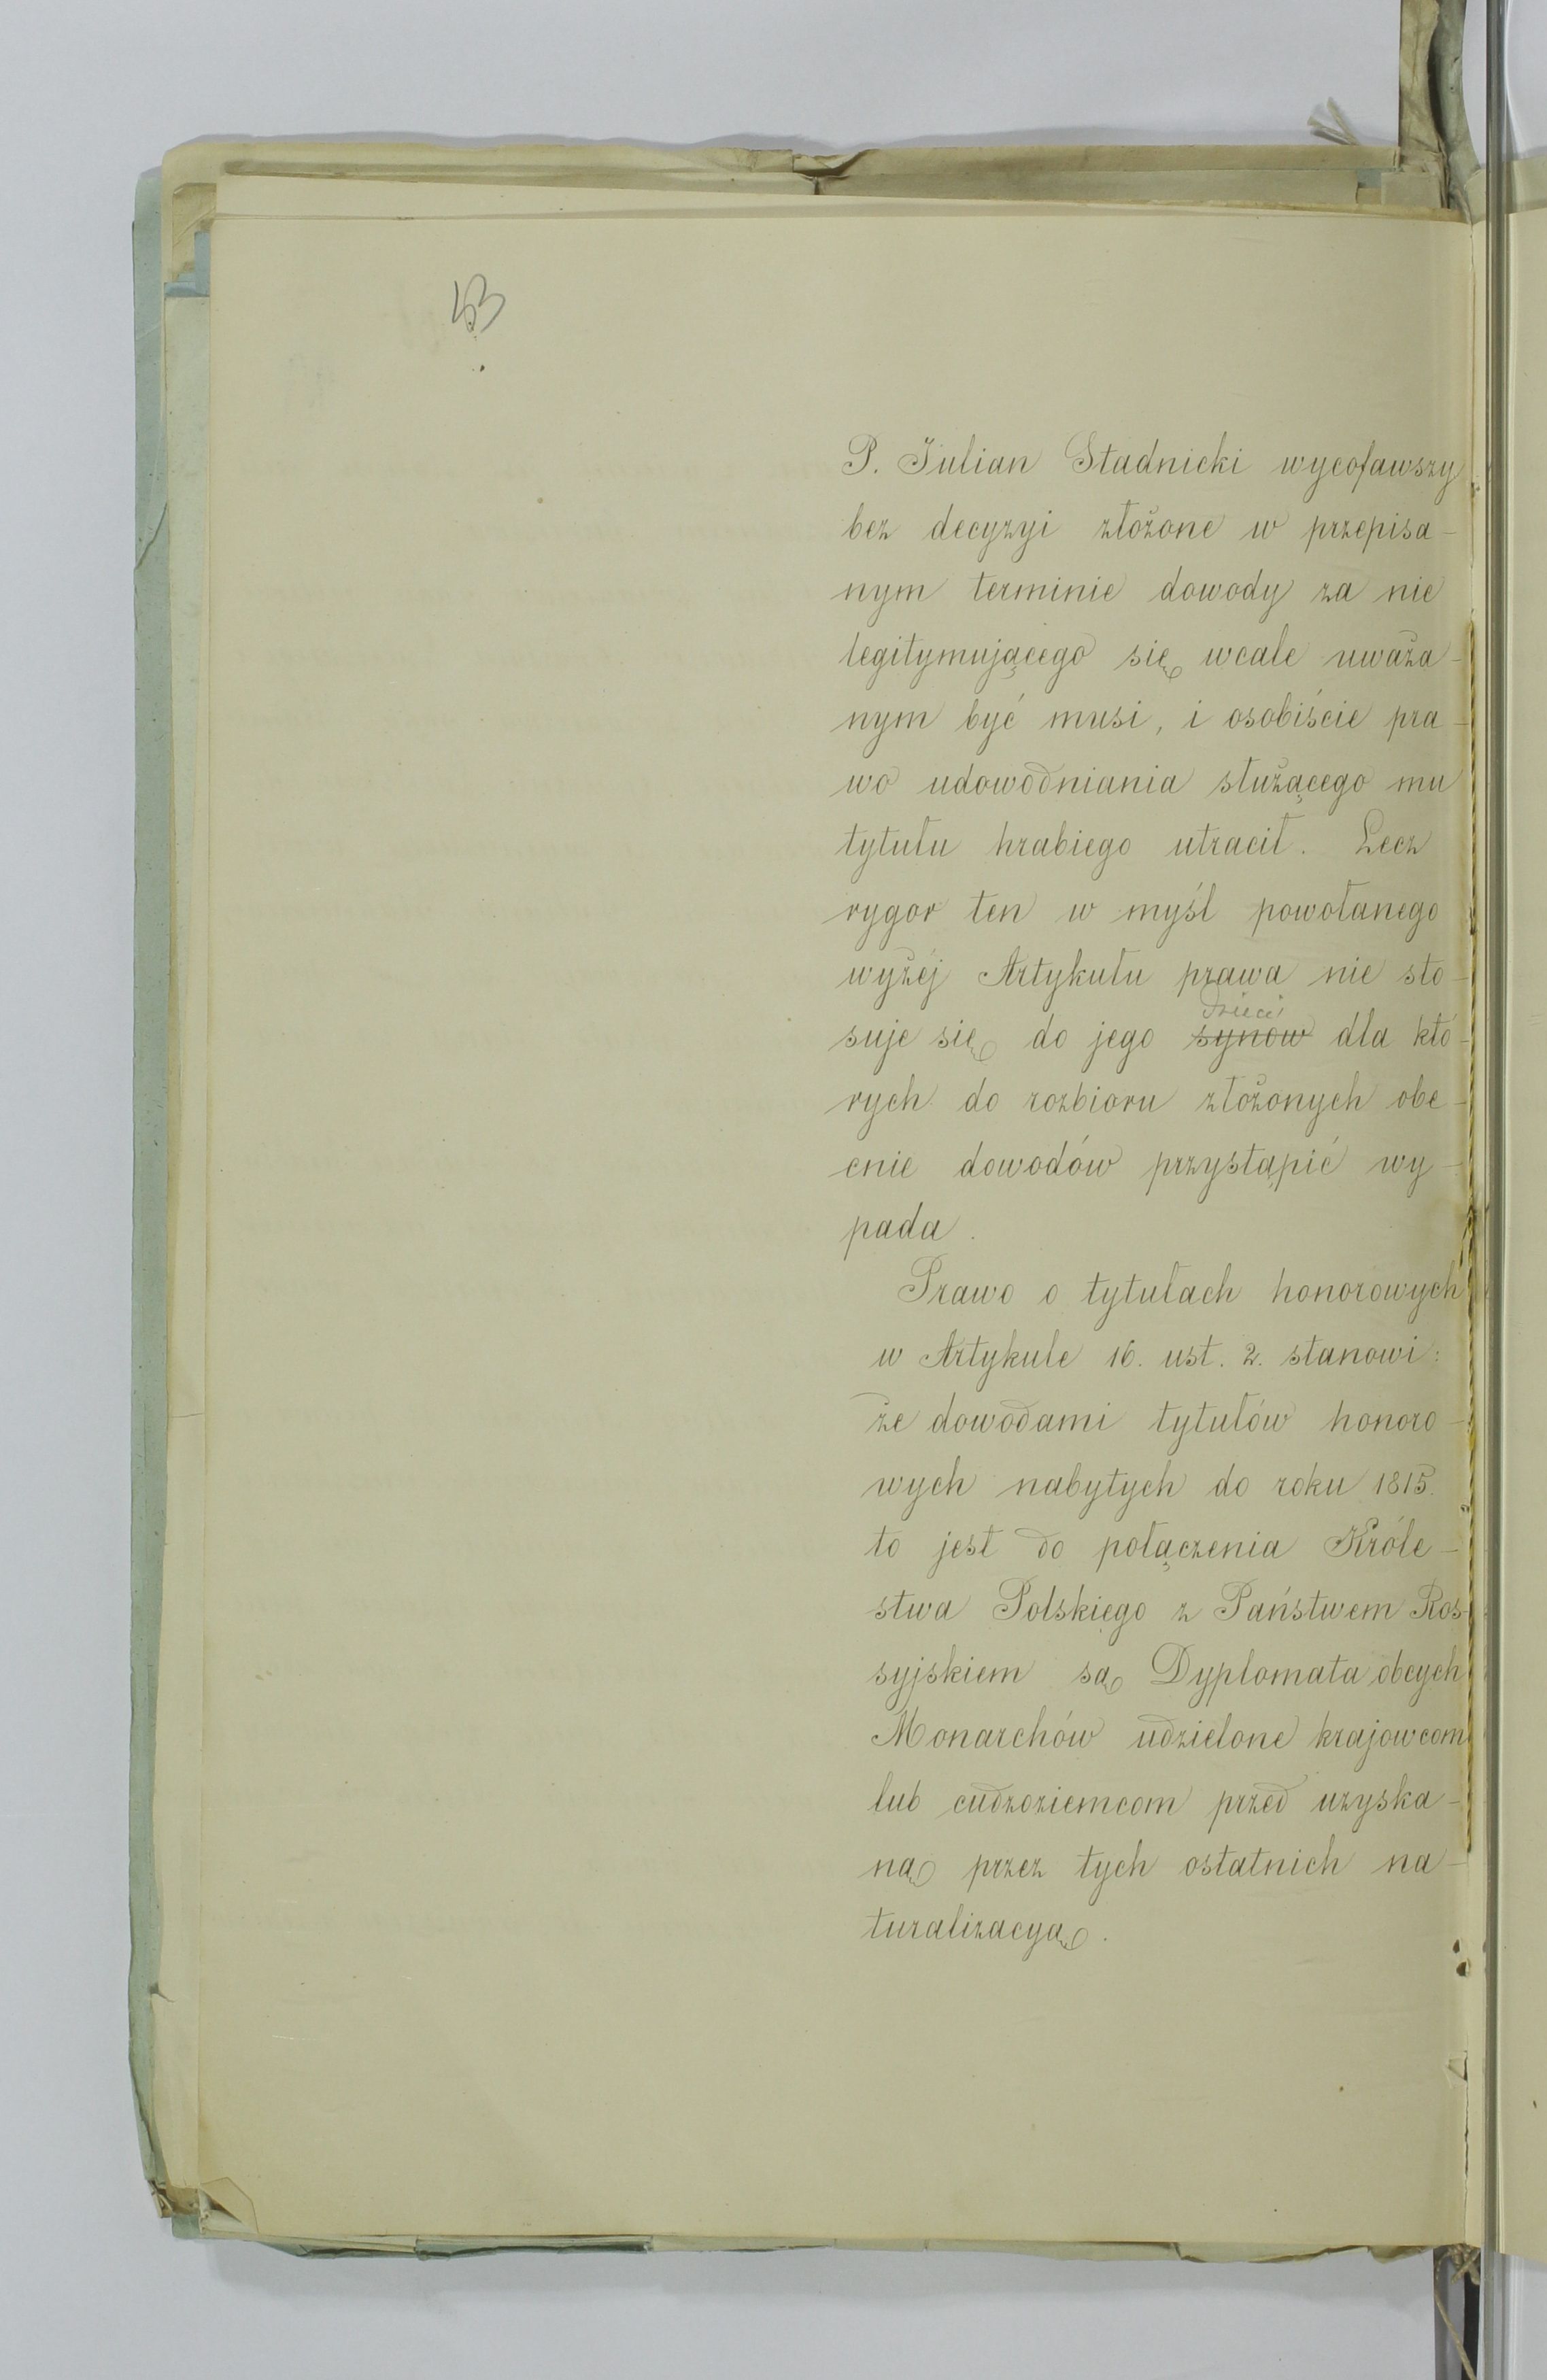 53
P. Julian Stadnicki wycofawszy
bez decyzyi złożone w przepisa-
nym terminie dowody za nie
legitymującego się wcale uważa-
nym być musi, i osobiście pra-
wo udowodniania służącego mu
tytułu hrabiego utracił. Lecz
rygor ten w myśl powołanego
wyżej Artykułu prawa nie sto-
dzieci
suje się do jego synów dla któ-
rych do rozbioru złożonych obe-
cnie dowodów przystąpić wy-
pada.
Prawo o tytułach honorowych
w Artykule 16. ust. 2. stanowi:
że dowodami tytułów honoro-
wych nabytych do roku 1815.
to jest do połączenia Króle-
stwa Polskiego z Państwem Ros-
syjskiem są Dyplomata obcych
Monarchów udzielone krajowcom
lub cudzoziemcom przed uzyska-
ną przez tych ostatnich na-
turalizacyą.